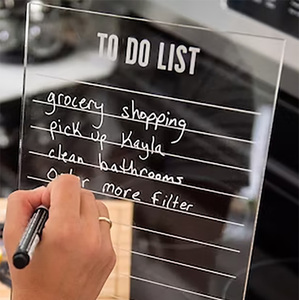 TO DO LIST
grocery shopping
pick up Kayla
clean bathrooms
Order more filter